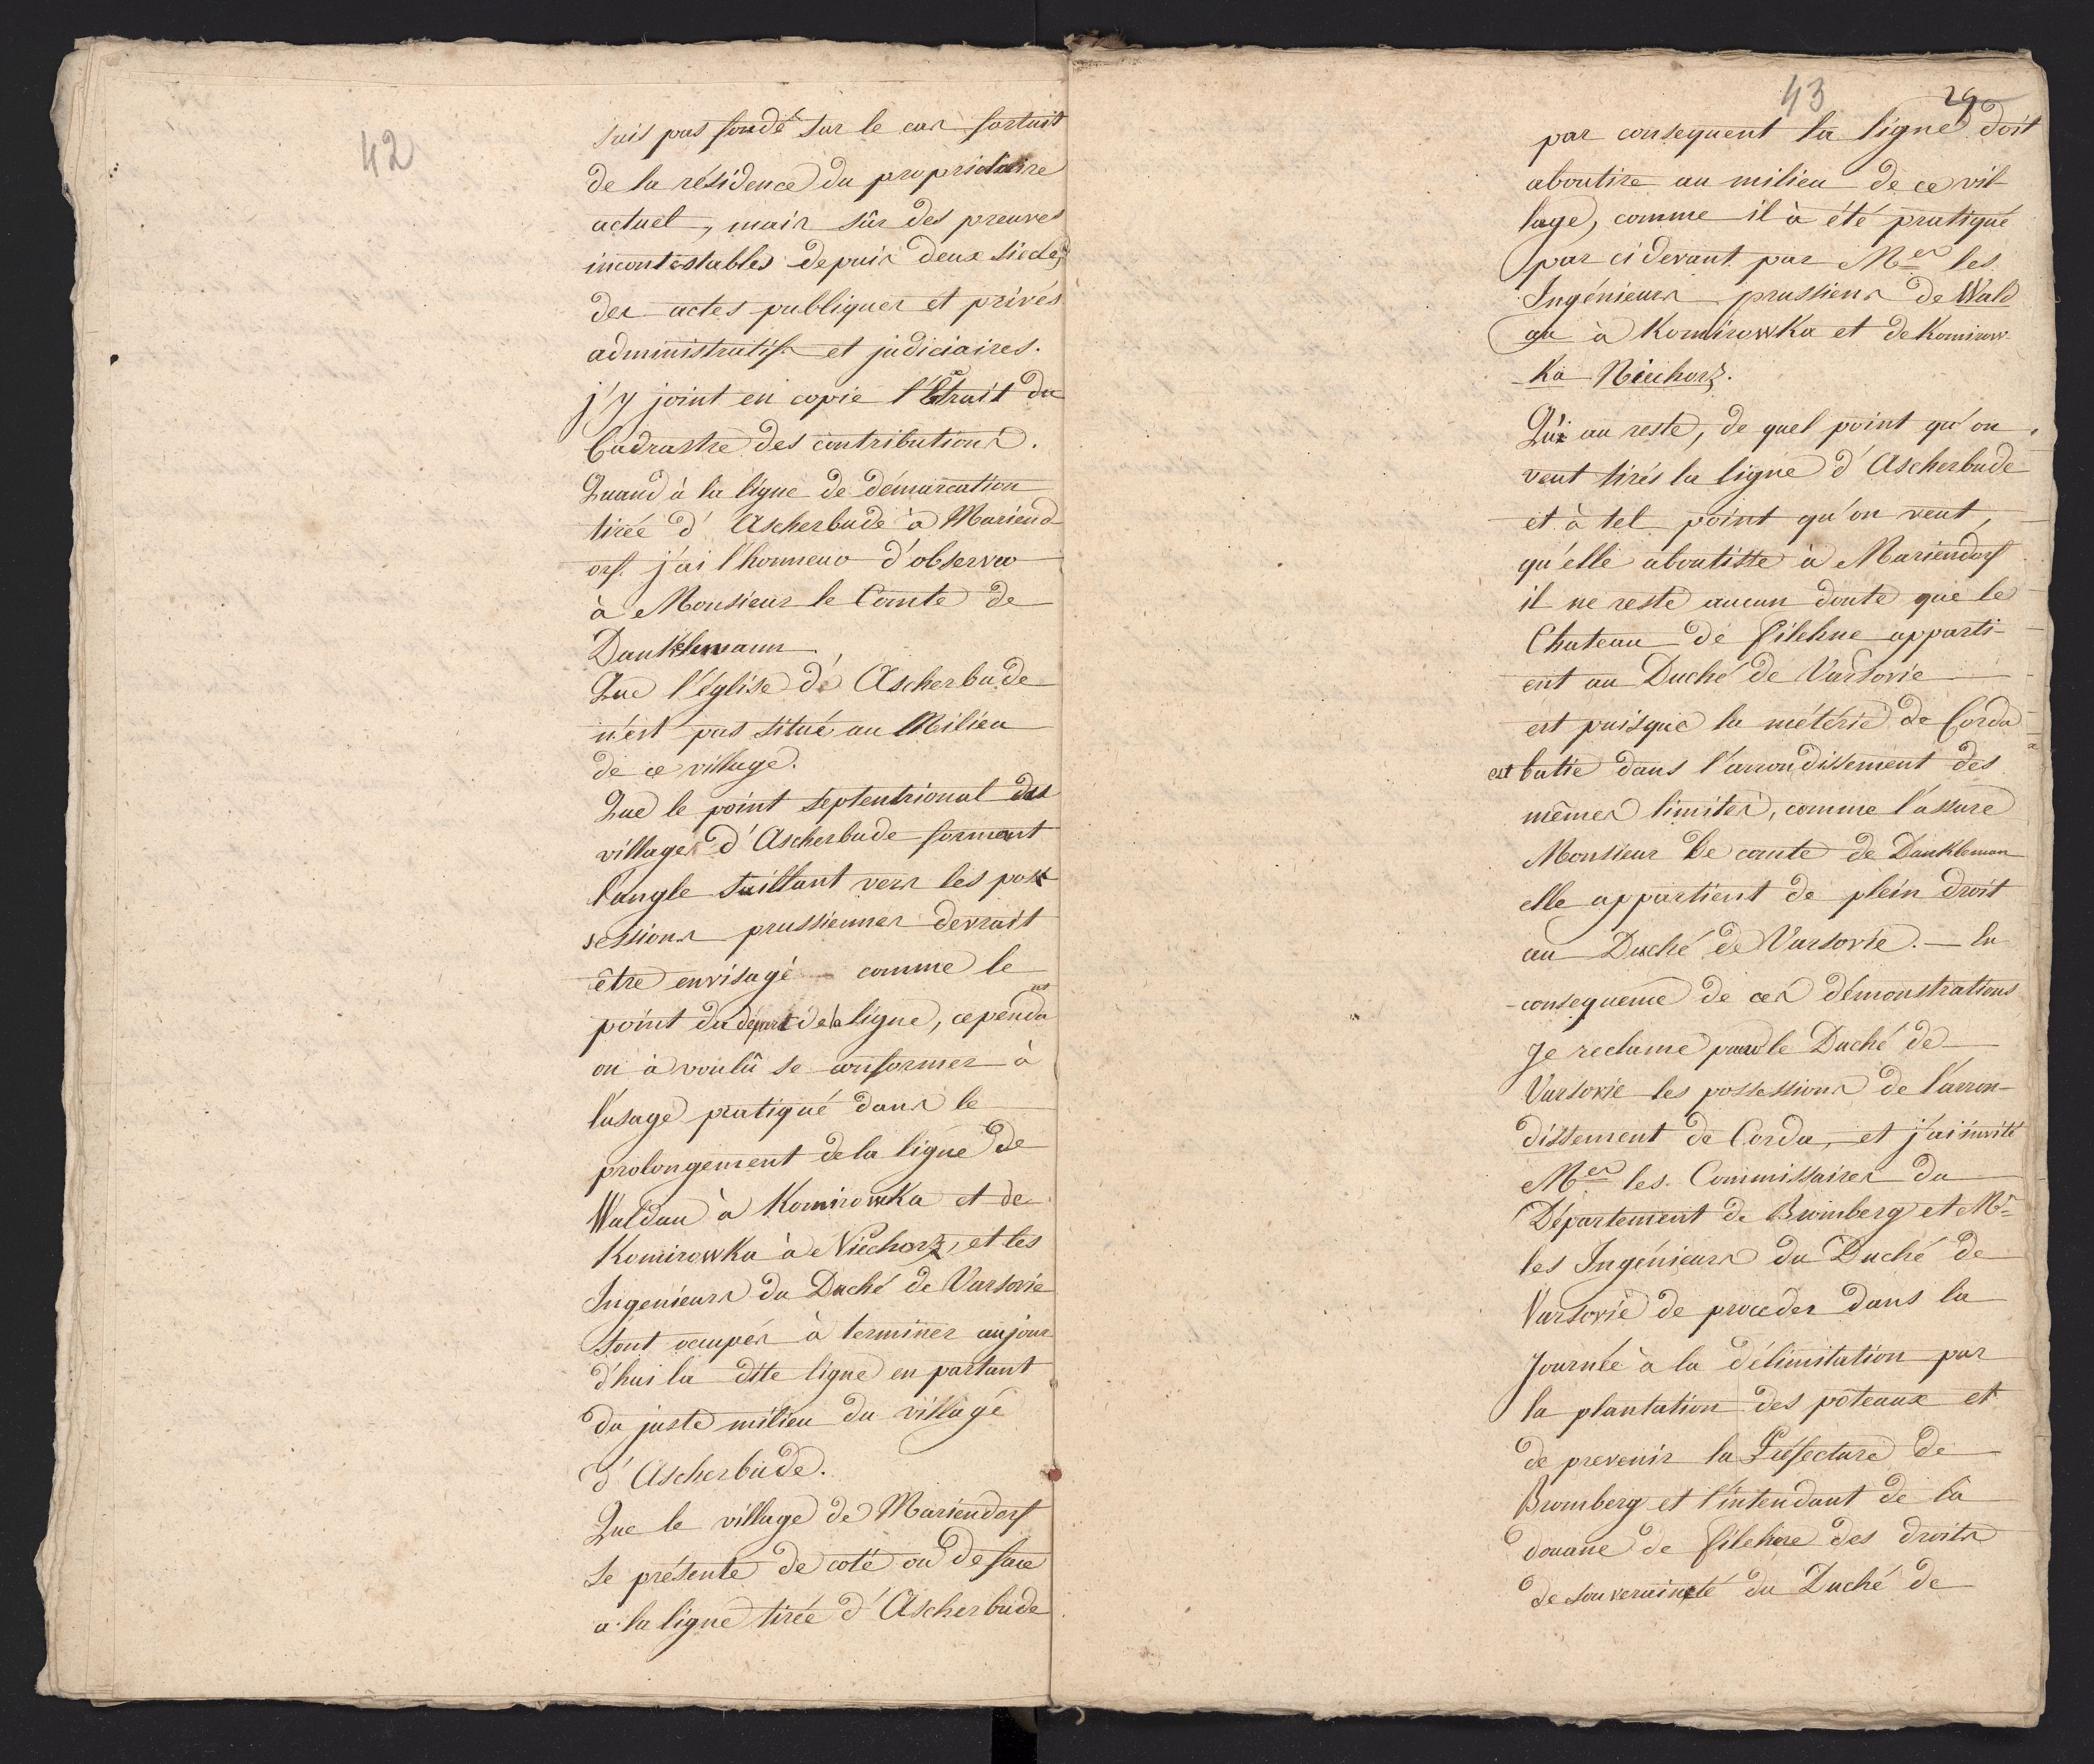 42
suis pas fondé sur le cas fortuit
de la résidence du propriétaire
actuel, mais sûr des preuves
incontestables depuis deux siecles,
des actes publiques et privés
administratifs et judiciaires.
j'y joint en copie l'Extrait du
Cadrastre des contributions.
Quand à la ligne de démarcation
tirée d'Ascherbude à Mariend
orf. j'ai l'honneur d'observer
à Monsieur le Comte de
Danklemann
Que l'église de Ascherbude
n'est pas situé au Milieu
de ce village.
Que le point septentrional des
villages d'Ascherbude formant
l'angle saillant vers les pos
sessions prussiennes devrait
être envisagé comme le
point du départ de la ligne, cependa
nt
on à voulû se conformer à
l'usage pratiqué dans le
prolongement de la ligne de
Waldau à Komirowka et de
Komirowka à Niechorz, et les
Ingenieurs du Duché de Varsovie
sont occupés à terminer aujour
d'hui la dite ligne en partant
du juste milieu du village
d'Ascherbude.
Que le village de Mariendorf
se présente de coté ou de face
a la ligne tirée d'Ascherbude
43
29
par consequent la ligne doit
aboutire au milieu de ce vil
lage, comme il à été pratiqué
par ci devant par Mrs les
Ingénieurs prussiens de Wald
au à Komirowka et de Komirow-
ka Niechorz.
Qu'au reste, de quel point qu'on
veut tirés la ligne d'Ascherbude
et à tel point qu'on veut,
qu'elle aboutisse à Mariendorf
il ne reste aucun doute que le
Chateau de Filehne apparti-
ent au Duché de Varsovie
et puisque la métérie de Corda
est batie dans l'arrondissement des
mêmes limites, comme l'assure
Monsieur le comte de Dankleman
elle appartient de plein droit
au Duché de Varsovie. — la
consequence de ces démonstrations
Je reclame pour le Duché de
Varsovie les possessions de l'arron-
dissement de Corda, et j'ai invité
Mrs les Commissaires du
Département de Bromberg et Mrs
les Ingénieurs du Duché de
Varsovie de proceder dans la
Journée à la délimitation par
la plantation des poteaux et
de prevenir la Préfecture de
Bromberg et l'intendant de la
douane de Filehne des droits
de souveraineté du Duché de